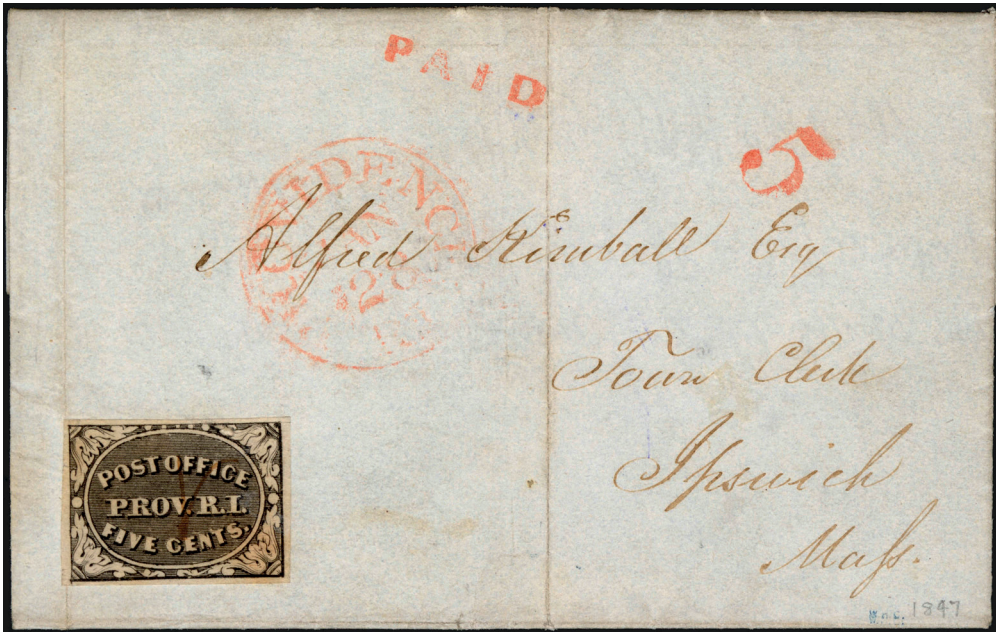 PAID
5
PROVIDENCE
JAN
28
Alfred Kimball Esq
Town Clerk
Ipswich
Mass.
POST OFFICE
PROV. R.I.
FIVE CENTS.
1847